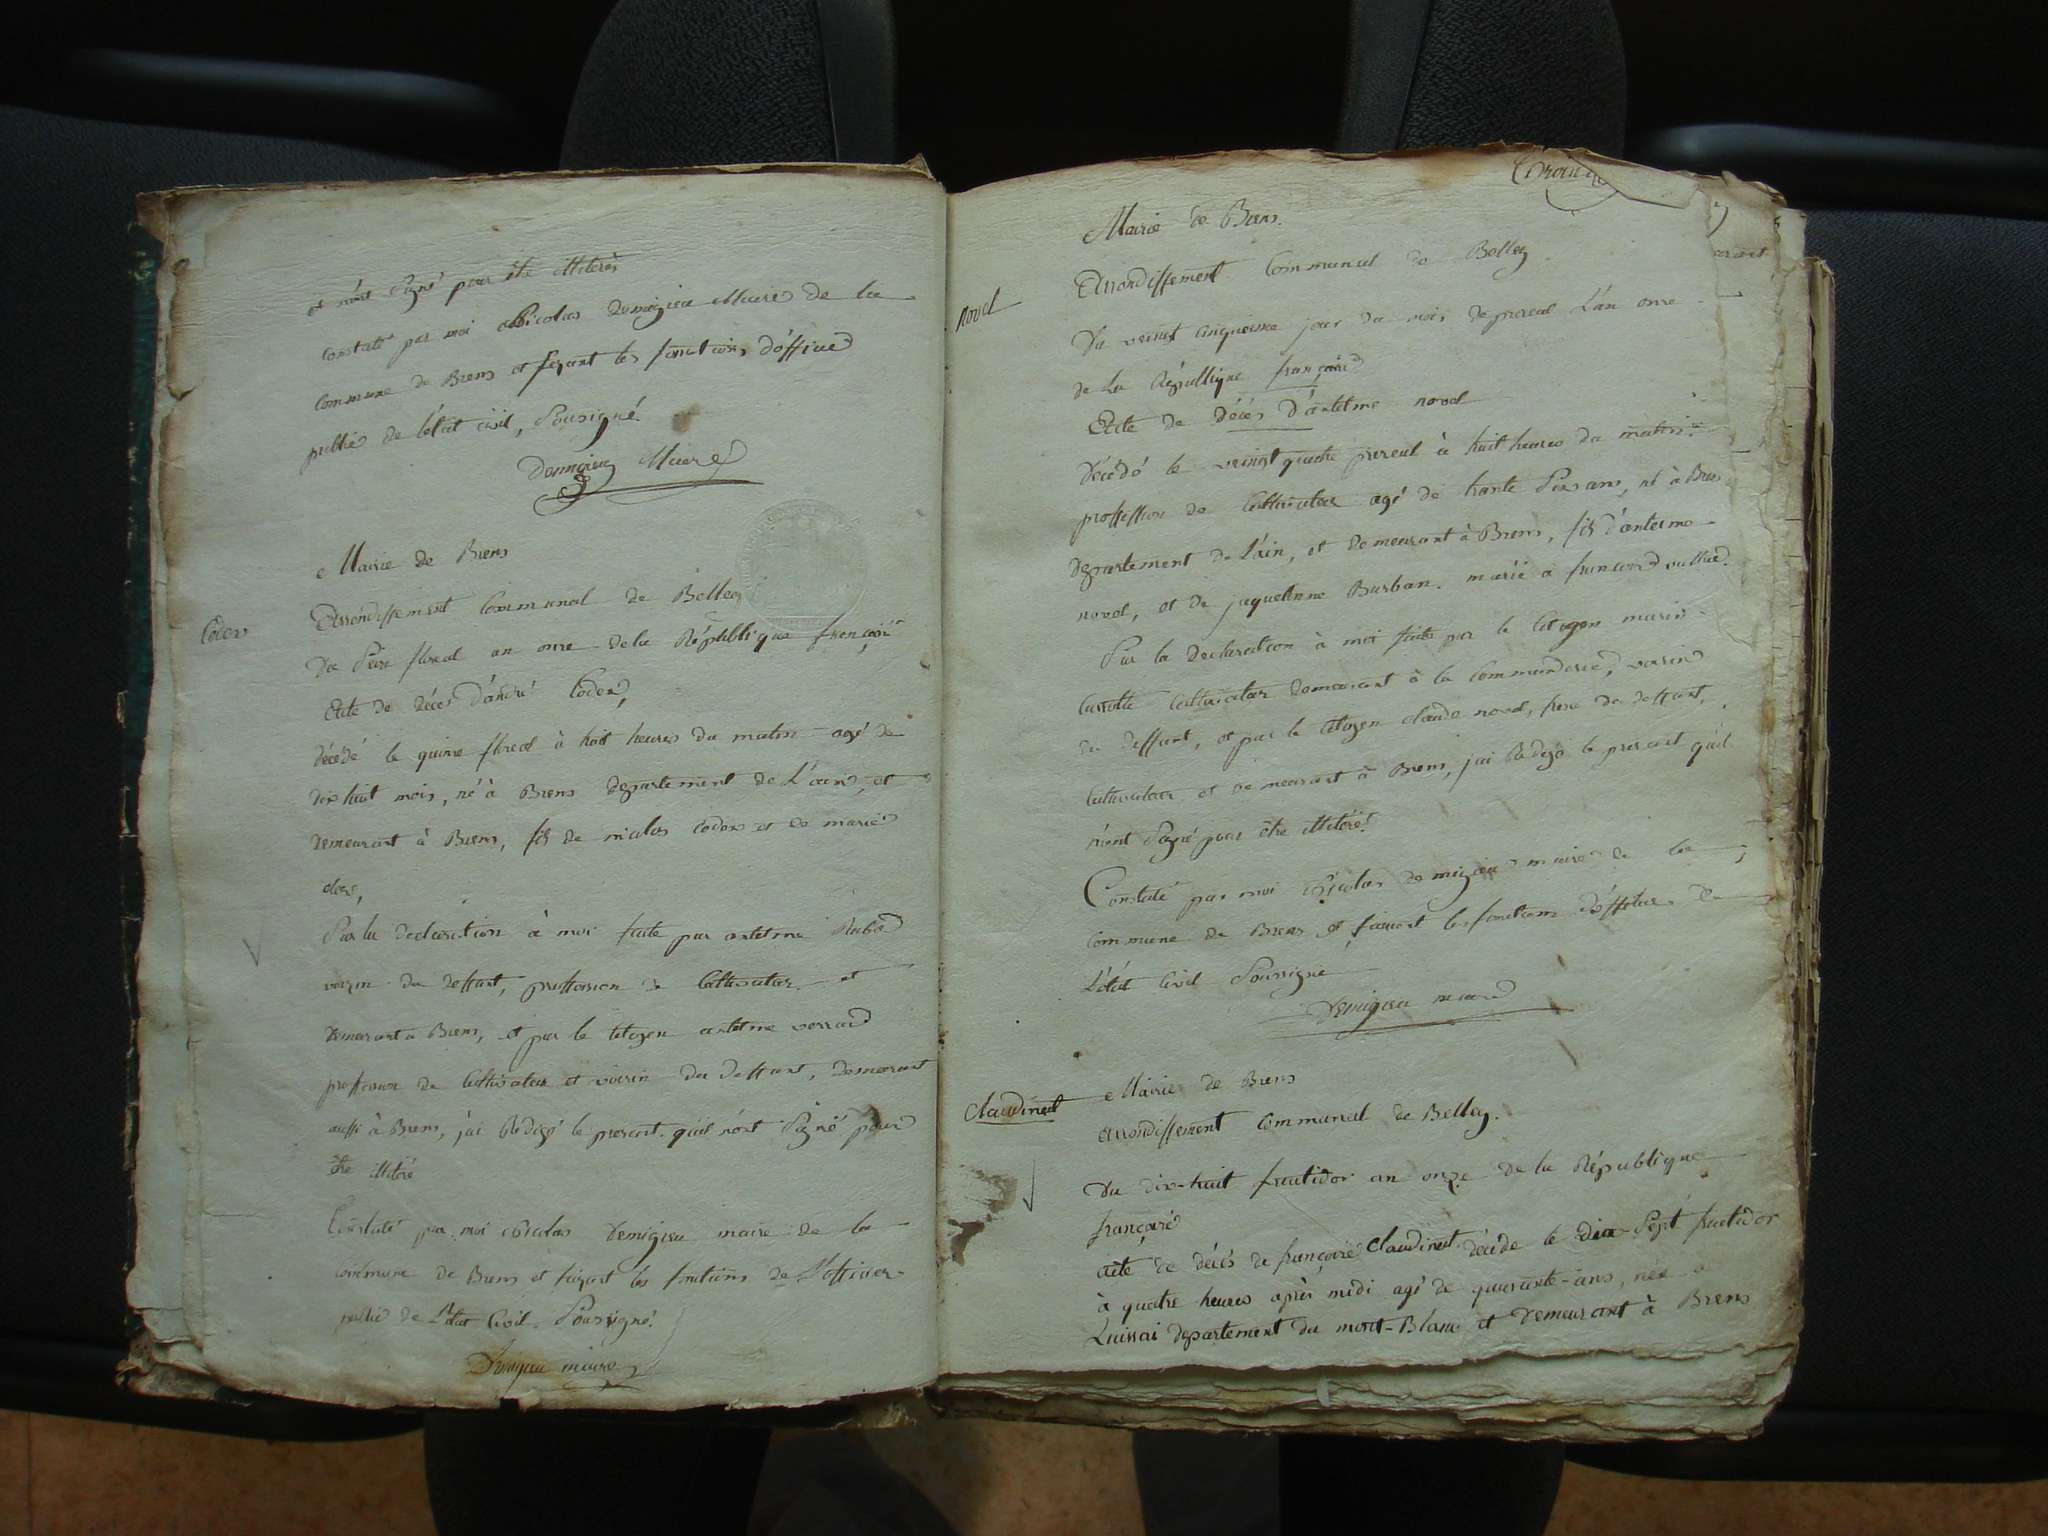 et n'ont signé pour être illiterés
constaté par moi Nicolas Demigieu Maire de la
commune de Brens et fesant les fonctions d'officier
public de l'état civil, Sousigné.
Demigieu Maire
Mairie de Brens
Arrondissement Communal de Belley
Coder
Du Seize floreal an onze de la République françoise
Acte de décès d'andré Coder,
décédé le quinze floreal à huit heures du matin agé de
dix huit mois, né à Brens departement de L'ain, et
demeurant à Brens, fils de nicolas Coder et de marie
Sur la declaration à moi faite par antelme
voisin du deffunt, proffession de Cultivateur et
demeurant à Brens, et par le Citoyen antelme
proffession de Cultivateur et voisin du deffunt, demeurant
aussi à Brens, j'ai Rédigé le present qu'ils n'ont Signé pour
être illitéré
Constaté par moi Nicolas Demigieu maire de la
commune de Brens et faisant les fonctions de L'officier
public de L'état Civil Soussigné.
Demigieu maire
Mairie de Brens
Arrondissement Communal de Belley
novel
Du veingt cinquieme jour du mois de prereal L'an onze
de La République françoise
Acte de Décés D'antelme novel
Décédé le veingt quatre prereal à huit heures du matin
proffession de Cultivateur agé de trante Six ans, né à Brens
departement de L'ain, et demeurant à Brens, fils d'antelme
novel, et de jaquelinne Burban. marié à françoise
Sur la Declaration à moi faite par le Citoyen marin
Cultivateur demeurant à la Commanderie, voisin
du deffunt, et par le Citoyen claude novel, frere du deffunt,
Cultivateur et demeurant à Brens, j'ai Redigé le present qu'ils
n'ont Signé pour être illitéré.
Constaté par moi Nicolas demigieu maire de la
commune de Brens et faisant les fonctions d'officier de
L'état Civil Soussigné
Demigieu maire
Mairie de Brens
claudinet
arrondissement communal de Belley.
Du dix-huit fructidor an onze de la République
françoise
acte de décès de françoise claudinet décédé le dix-Sept fructidor
à quatre heures après midi agé de quarante-ans, née a
Luissai departement du mont-Blanc et demeurant à Brens